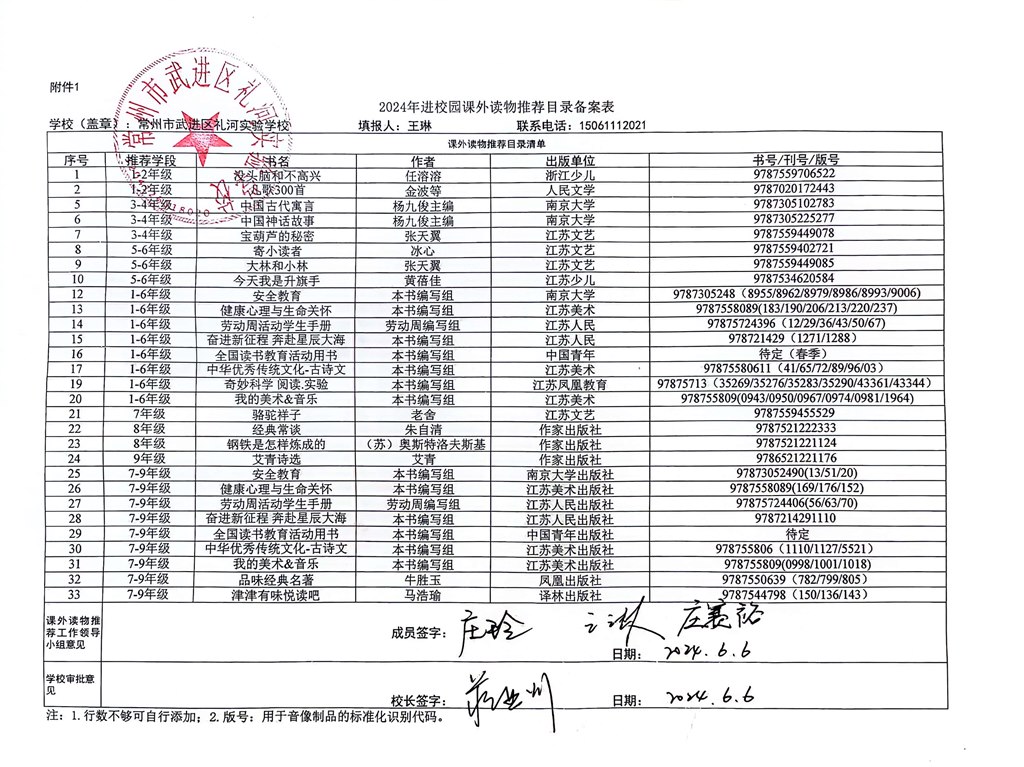 附件1
2024年进校园课外读物推荐目录备案表
学校（盖章）：常州市武进区礼河实验学校 填报人：王琳 联系电话：15061112021
常州市武进区礼河实验学校
课外读物推荐目录清单
序号 推荐学段 书名 作者 出版单位 书号/刊号/版号
1 1-2年级 没头脑和不高兴 任溶溶 浙江少儿 9787559706522
2 1-2年级 儿歌300首 金波等 人民文学 9787020172443
5 3-4年级 中国古代寓言 杨九俊主编 南京大学 9787305102783
6 3-4年级 中国神话故事 杨九俊主编 南京大学 9787305225277
7 3-4年级 宝葫芦的秘密 张天翼 江苏文艺 9787559449078
8 5-6年级 寄小读者 冰心 江苏文艺 9787559402721
9 5-6年级 大林和小林 张天翼 江苏文艺 9787559449085
10 5-6年级 今天我是升旗手 黄蓓佳 江苏少儿 9787534620584
12 1-6年级 安全教育 本书编写组 南京大学 9787305248（8955/8962/8979/8986/8993/9006)
13 1-6年级 健康心理与生命关怀 本书编写组 江苏美术 9787558089(183/190/206/213/220/237)
14 1-6年级 劳动周活动学生手册 劳动周编写组 江苏人民 97875724396（12/29/36/43/50/67)
15 1-6年级 奋进新征程 奔赴星辰大海 本书编写组 江苏人民 978721429（1271/1288）
16 1-6年级 全国读书教育活动用书 本书编写组 中国青年 待定（春季）
17 1-6年级 中华优秀传统文化-古诗文 本书编写组 江苏美术 97875580611（41/65/72/89/96/03）
19 1-6年级 奇妙科学 阅读.实验 本书编写组 江苏凤凰教育 97875713（35269/35276/35283/35290/43361/43344）
20 1-6年级 我的美术&音乐 本书编写组 江苏美术 978755809(0943/0950/0967/0974/0981/1964)
21 7年级 骆驼祥子 老舍 江苏文艺 9787559455529
22 8年级 经典常谈 朱自清 作家出版社 9787521222333
23 8年级 钢铁是怎样炼成的 （苏）奥斯特洛夫斯基 作家出版社 9787521221124
24 9年级 艾青诗选 艾青 作家出版社 9786521221176
25 7-9年级 安全教育 本书编写组 南京大学出版社 97873052490(13/51/20)
26 7-9年级 健康心理与生命关怀 本书编写组 江苏美术出版社 9787558089(169/176/152)
27 7-9年级 劳动周活动学生手册 劳动周编写组 江苏人民出版社 97875724406(56/63/70)
28 7-9年级 奋进新征程 奔赴星辰大海 本书编写组 江苏人民出版社 9787214291110
29 7-9年级 全国读书教育活动用书 本书编写组 中国青年出版社 待定
30 7-9年级 中华优秀传统文化-古诗文 本书编写组 江苏美术出版社 978755806（1110/1127/5521）
31 7-9年级 我的美术&音乐 本书编写组 江苏美术出版社 978755809(0998/1001/1018)
32 7-9年级 品味经典名著 牛胜玉 凤凰出版社 9787550639（782/799/805）
33 7-9年级 津津有味悦读吧 马浩瑜 译林出版社 9787544798（150/136/143）
课外读物推
荐工作领导
小组意见
成员签字：庄玲 王琳
日期： 2024.6.6
学校审批意
见
校长签字：
日期： 2024.6.6
注：1.行数不够可自行添加；2.版号：用于音像制品的标准化识别代码。